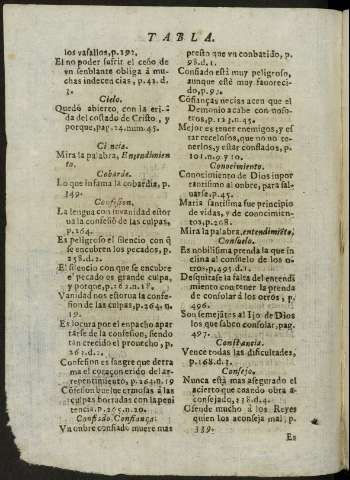 TABLA.
los vasallos, p. 192.
El no poder sufrir el ceño de
vn senblante obliga á mu-
chas indecencias, p. 42. d.
3.
Cielo.
Quedó abierto, con la eri-
da del costado de Cristo, y
porque, pag. 24. num. 45.
Ciencia.
Mira la palabra, Entendimien
to.
Cobarde.
Lo que infama la cobardia, p.
349.
Confision.
La lengua con invanidad estor
ua la confesiõ de las culpas,
p. 264.
Es peligroso el silencio con q̃
se encubren los pecados, p.
258. d. 2.
El silencio con que se encubre
el pecado es grande culpa,
y porque, p. 262. n. 18.
Vanidad nos estorua la confe-
sion de las culpas, p. 264. n.
19.
Es locura por el enpacho apar
tarse de la confesion, siendo
tan crecido el prouecho, p.
261. d. 2.
Confesion es sangre que derra
ma el coraçon erido del ar-
repentimiento, p. 264. n. 19
Cõfesion buelue ermosas á las
culpas borradas con la peni
tencia. p. 265. n. 20.
Confiado Confiança.
Vn onbre confiado muere mas
presto que vn conbatido, p.
98. d. 1.
Confiado está muy peligroso,
aunque esté muy fauoreci-
do, p. 97.
Cõfianças necias acen que el
Demonio acabe con noso-
tros, p. 123. n. 45.
Mejor es tener enemigos, y es
tar recelosos, que no no te-
nerlos, y estar confiados, p.
101. n. 9. y 10.
Conocimiento.
Conocimiento de Dios inpor
tantisimo al onbre, para sal-
uarse. p. 45.
Maria santisima fue principio
de vidas, y de conocimien-
tos, p. 208.
Mira la palabra, entendimiẽto.
Consuelo.
Es nobilisima prenda la que in
clina al consuelo de los o-
tros, p. 495. d. 1.
Desquitase la falta del entendi
miento con tener la prenda
de consolar á los otros, p.
496.
Son semejãtes al Ijo de Dios
los que saben consolar, pag.
497.
Constancia.
Vence todas las dificultades,
p. 168. d. 1.
Consejo.
Nunca está mas asegurado el
acierto que cuando obra a-
consejado, 338. d. 4.
Ofende mucho á los Reyes
quien los aconseja mal, p.
339.
Es